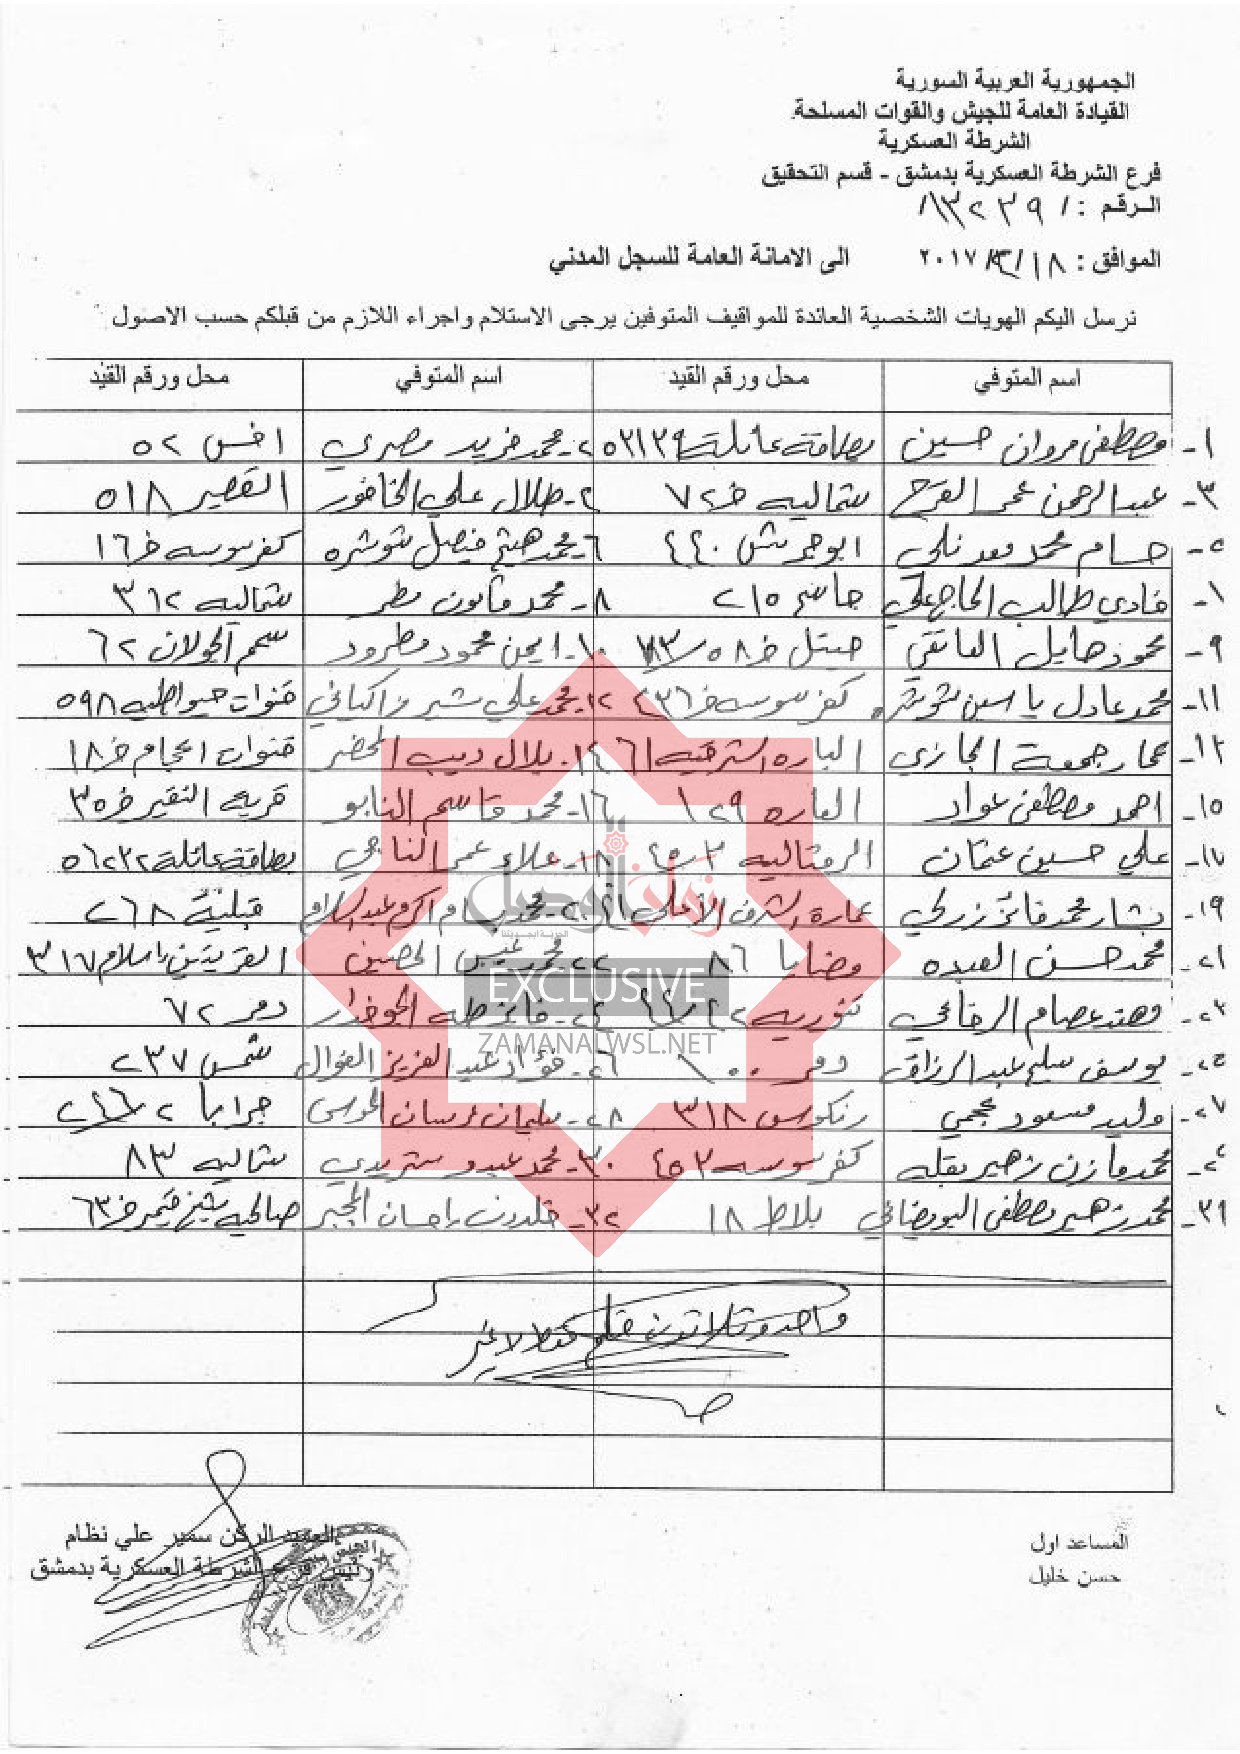 الجمهورية العربية السورية
القيادة العامة للجيش والقوات المسلحة
الشرطة العسكرية
فرع الشرطة العسكرية بدمشق - قسم التحقيق
الرقم : / ١٣٢٣٩ /
الموافق : ١٨ / ٣ / ٢٠١٧ الى الامانة العامة للسجل المدني
نرسل اليكم الهويات الشخصية العائدة للمواقيف المتوفين يرجى الاستلام واجراء اللازم من قبلكم حسب الاصول
اسم المتوفي محل ورقم القيد اسم المتوفي محل ورقم القيد
١- مصطفى مروان حسين بطاقة عائلة ٥٢١٣٩ ٢- محمد فريد مصري افس ٥٢
٣- عبدالرحمن عمر الفرج شماليه خ ٧٢ طلال علي الخافور القصير ٥١٨
٥- حسام محمد معدنلي ٤٤٠ ٦- محمد هيثم فيصل شوشره كفرسوسه خ ١٦
فادي طالب الحاج علي جاسم ٢١٥ ٨- محمد قانون مطر شماليه ٣٦٢
٩- محمود هايل العاتقي حيتل خ ٥٨ ١٠- ايمن محمود مطرود سحم الجولان ٦٢
١١- محمد عادل ياسين شوشره كفرسوسه خ ١٢- محمد علي شيرزاكياني قنوات ٥٩٨
١٣- عمار جمعة الجازي الباره الشرقيه ١٤- بلال ديب الخضر قنوات اعجام خ ١٨
١٥- احمد مصطفى عواد الباره ١٢٩ ١٦- محمد قاسم النابو خ ٣٥
١٧- علي حسين عثمان الرمثاليه ١٨- علاء عمر الناجي بطاقة عائلة ٥٦٢٣٢
١٩- بشار محمد فائز زركي عمارة اكرم عبدالسلام قبلية ٢٦٨
٢١- محمد حسن العبده مضايا ٨٦ ٢٢- محمد الحصين القريتين اسلام ٣١٧
٢٣- مهند عصام الرفاعي فايز طه دمر ٧٢
٢٥- يوسف سليم عبدالرزاق دمر ٦٠٠ ٢٦- فؤاد عبد العزيز الفوال شمس ٢٣٧
٢٧- وليد مسعود عجمي رنكوس ٣١٨ ٢٨- سليمان جرابا
محمد مازن زهير بقله كفرسوسه ٤٥٢ ٣٠- محمد عبدو شماليه ٨٣
٣١- محمد زهير مصطفى البويضاني بلاط ١٨ ٣٢- خلدون احسان المجبر صالحيه شيخ خ ٦٣
واحد وثلاثون فقط لا غير
المساعد اول
حسن خليل
العميد الركن سمير علي نظام
رئيس فرع الشرطة العسكرية بدمشق
زمان الوصل
EXCLUSIVE
ZAMANALWSL.NET